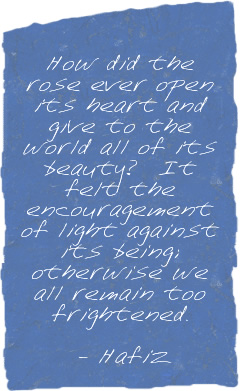 How did the
rose ever open
its heart and
give to the
world all of its
beauty? It
felt the
encouragement
of light against
its being;
otherwise we
all remain too
frightened.
- Hafiz